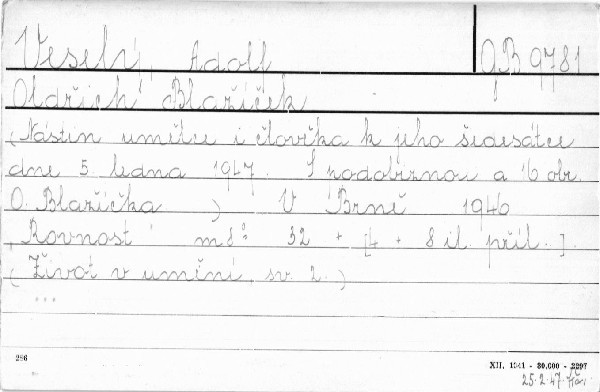 Veselý, Adolf OB 9781
Oldřich Blažíček
(Nástin umělce i člověka k jeho šedesátce
dne 5. ledna 1947. S podobiznou a 16 obr.
O. Blažíčka) V Brně 1946
, Rovnost m 8° 32 + [4 + 8 il příl.].
(Život v umění, sv. 2.)
...
286
XII. 1941 - 30.000 - 2297
25.2.47.